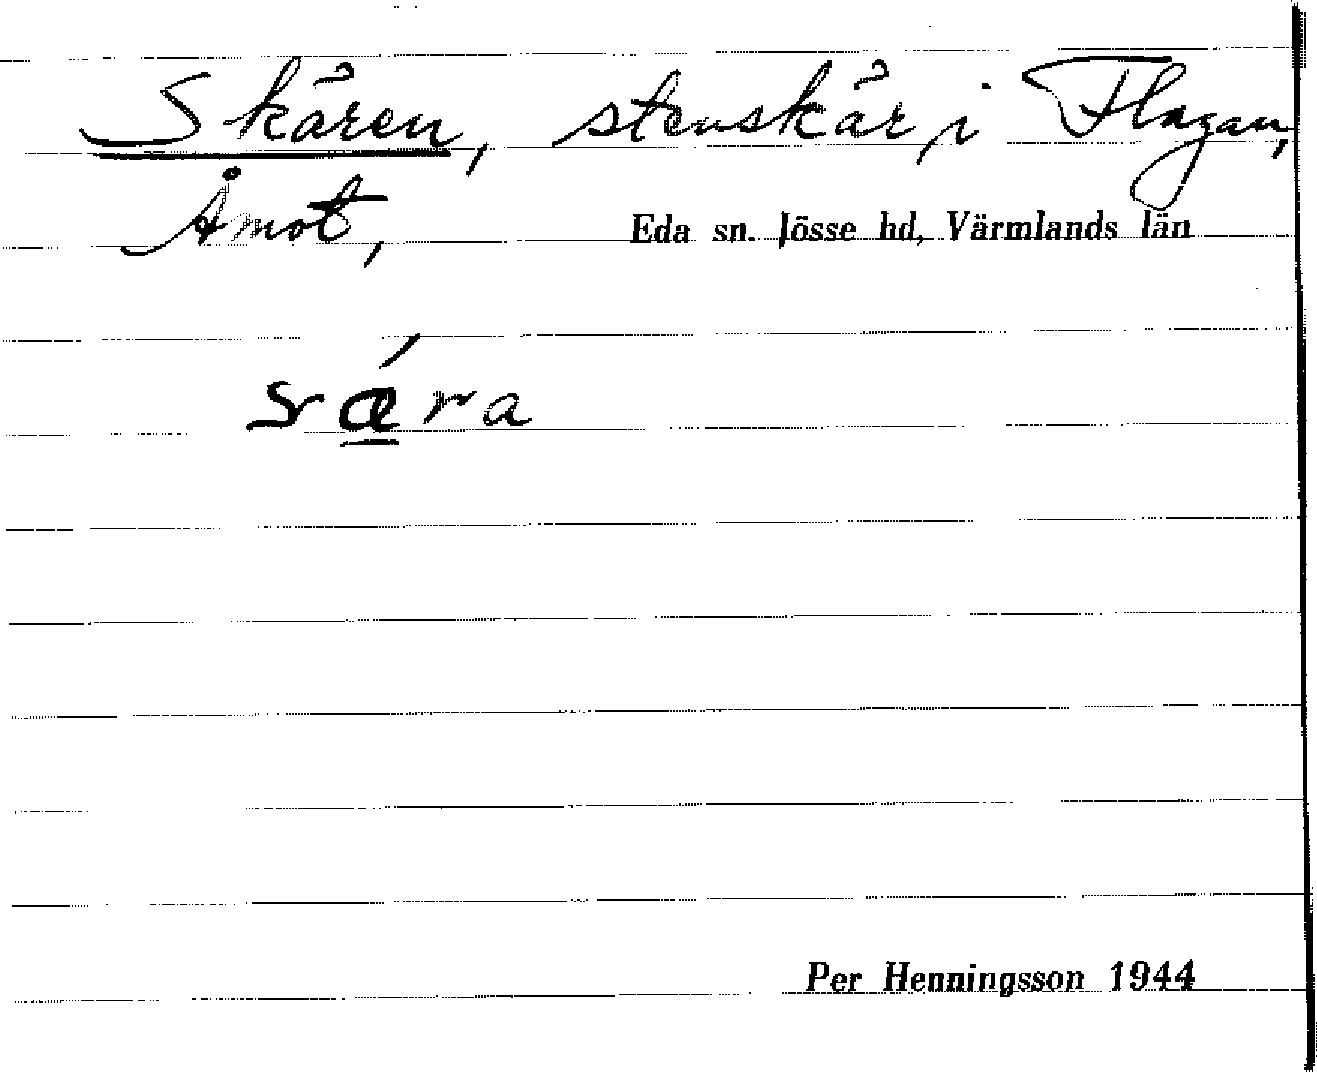 Skären, stenskär i Flagan,
Åmot,
Eda sn. Jösse hd, Värmlands län
Per Henningsson 1944